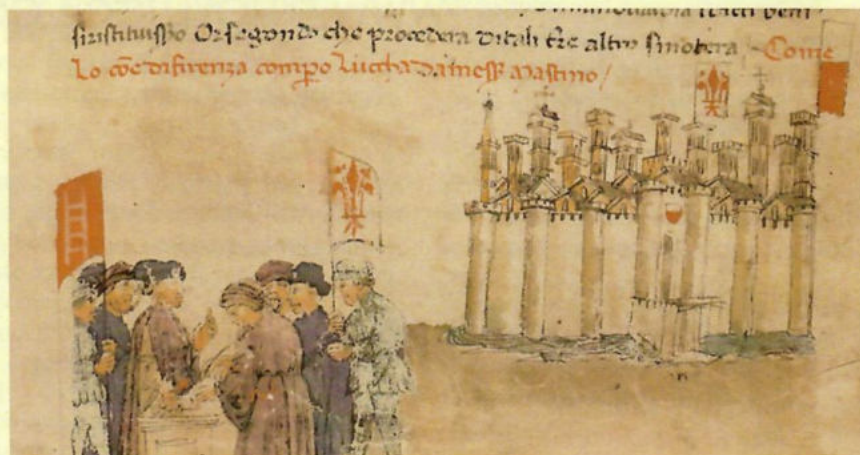 siristituisso Orsegondo che procedera ditali tre altro sinotera Come
Lo coe difirenza compo Luccha Damess Mastino